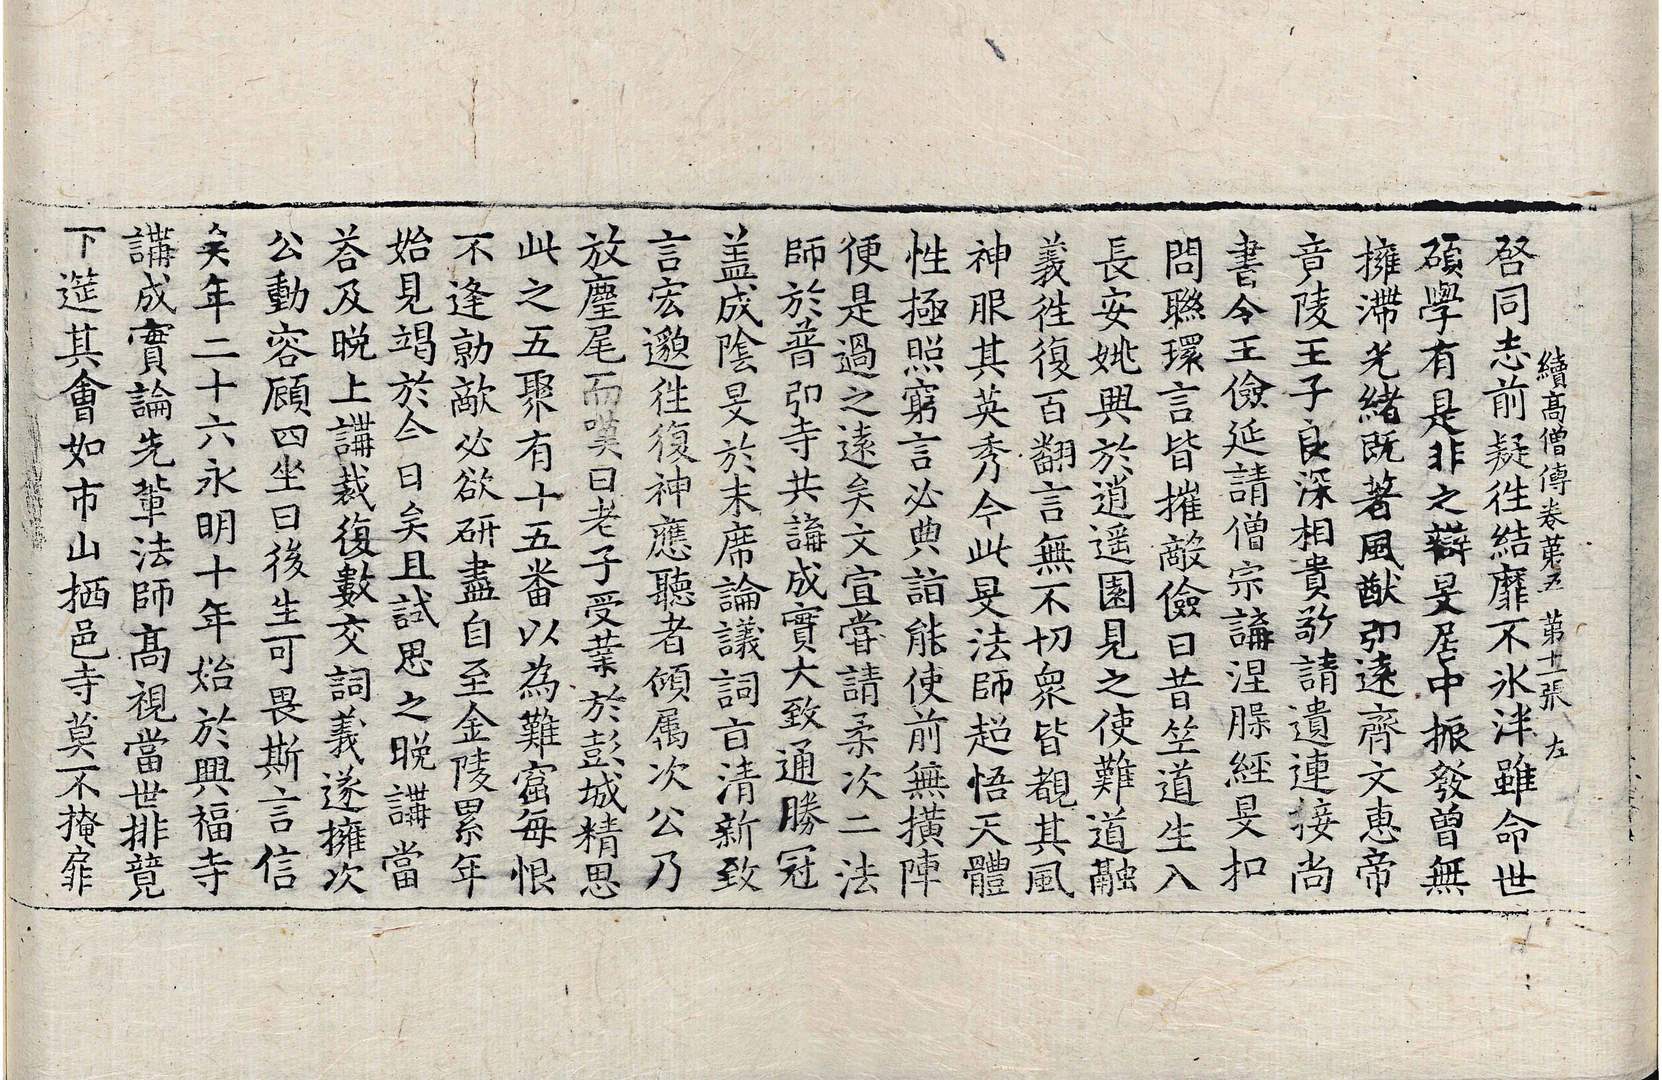 續高僧傳卷第五 第十二張 左
啓同志前疑往結靡不氷泮雖命世
碩學有是非之辯旻居中振發曾無
擁滯光緒旣著風猷卽遠齊文惠帝
竟陵王子良深相貴敬請遺連接尚
書令王儉延請僧宗講涅槃經旻扣
問聯環言皆摧敵儉曰昔竺道生入
長安姚興於逍遥園見之使難道融
義往復百翻言無不切衆皆覩其風
神服其英秀今此旻法師超悟天體
性極照窮言必典詣能使前無橫陣
便是過之遠矣文宣嘗請柔次二法
師於普卽寺共講成實大致通勝冠
盖成陰旻於末席論議詞㫖清新致
言宏邈往復神應聽者傾属次公乃
放麈尾而嘆曰老子受業於彭城精思
此之五聚有十五番以為難窟每恨
不逢勍敵必欲研盡自至金陵累年
始見竭於今日矣且試思之晚講當
荅及晚上講裁復數交詞義遂擁次
公動容顧四坐曰後生可畏斯言信
矣年二十六永明十年始於興福寺
講成實論先輩法師高視當世排競
下莚其會如市山栖邑寺莫不掩扉